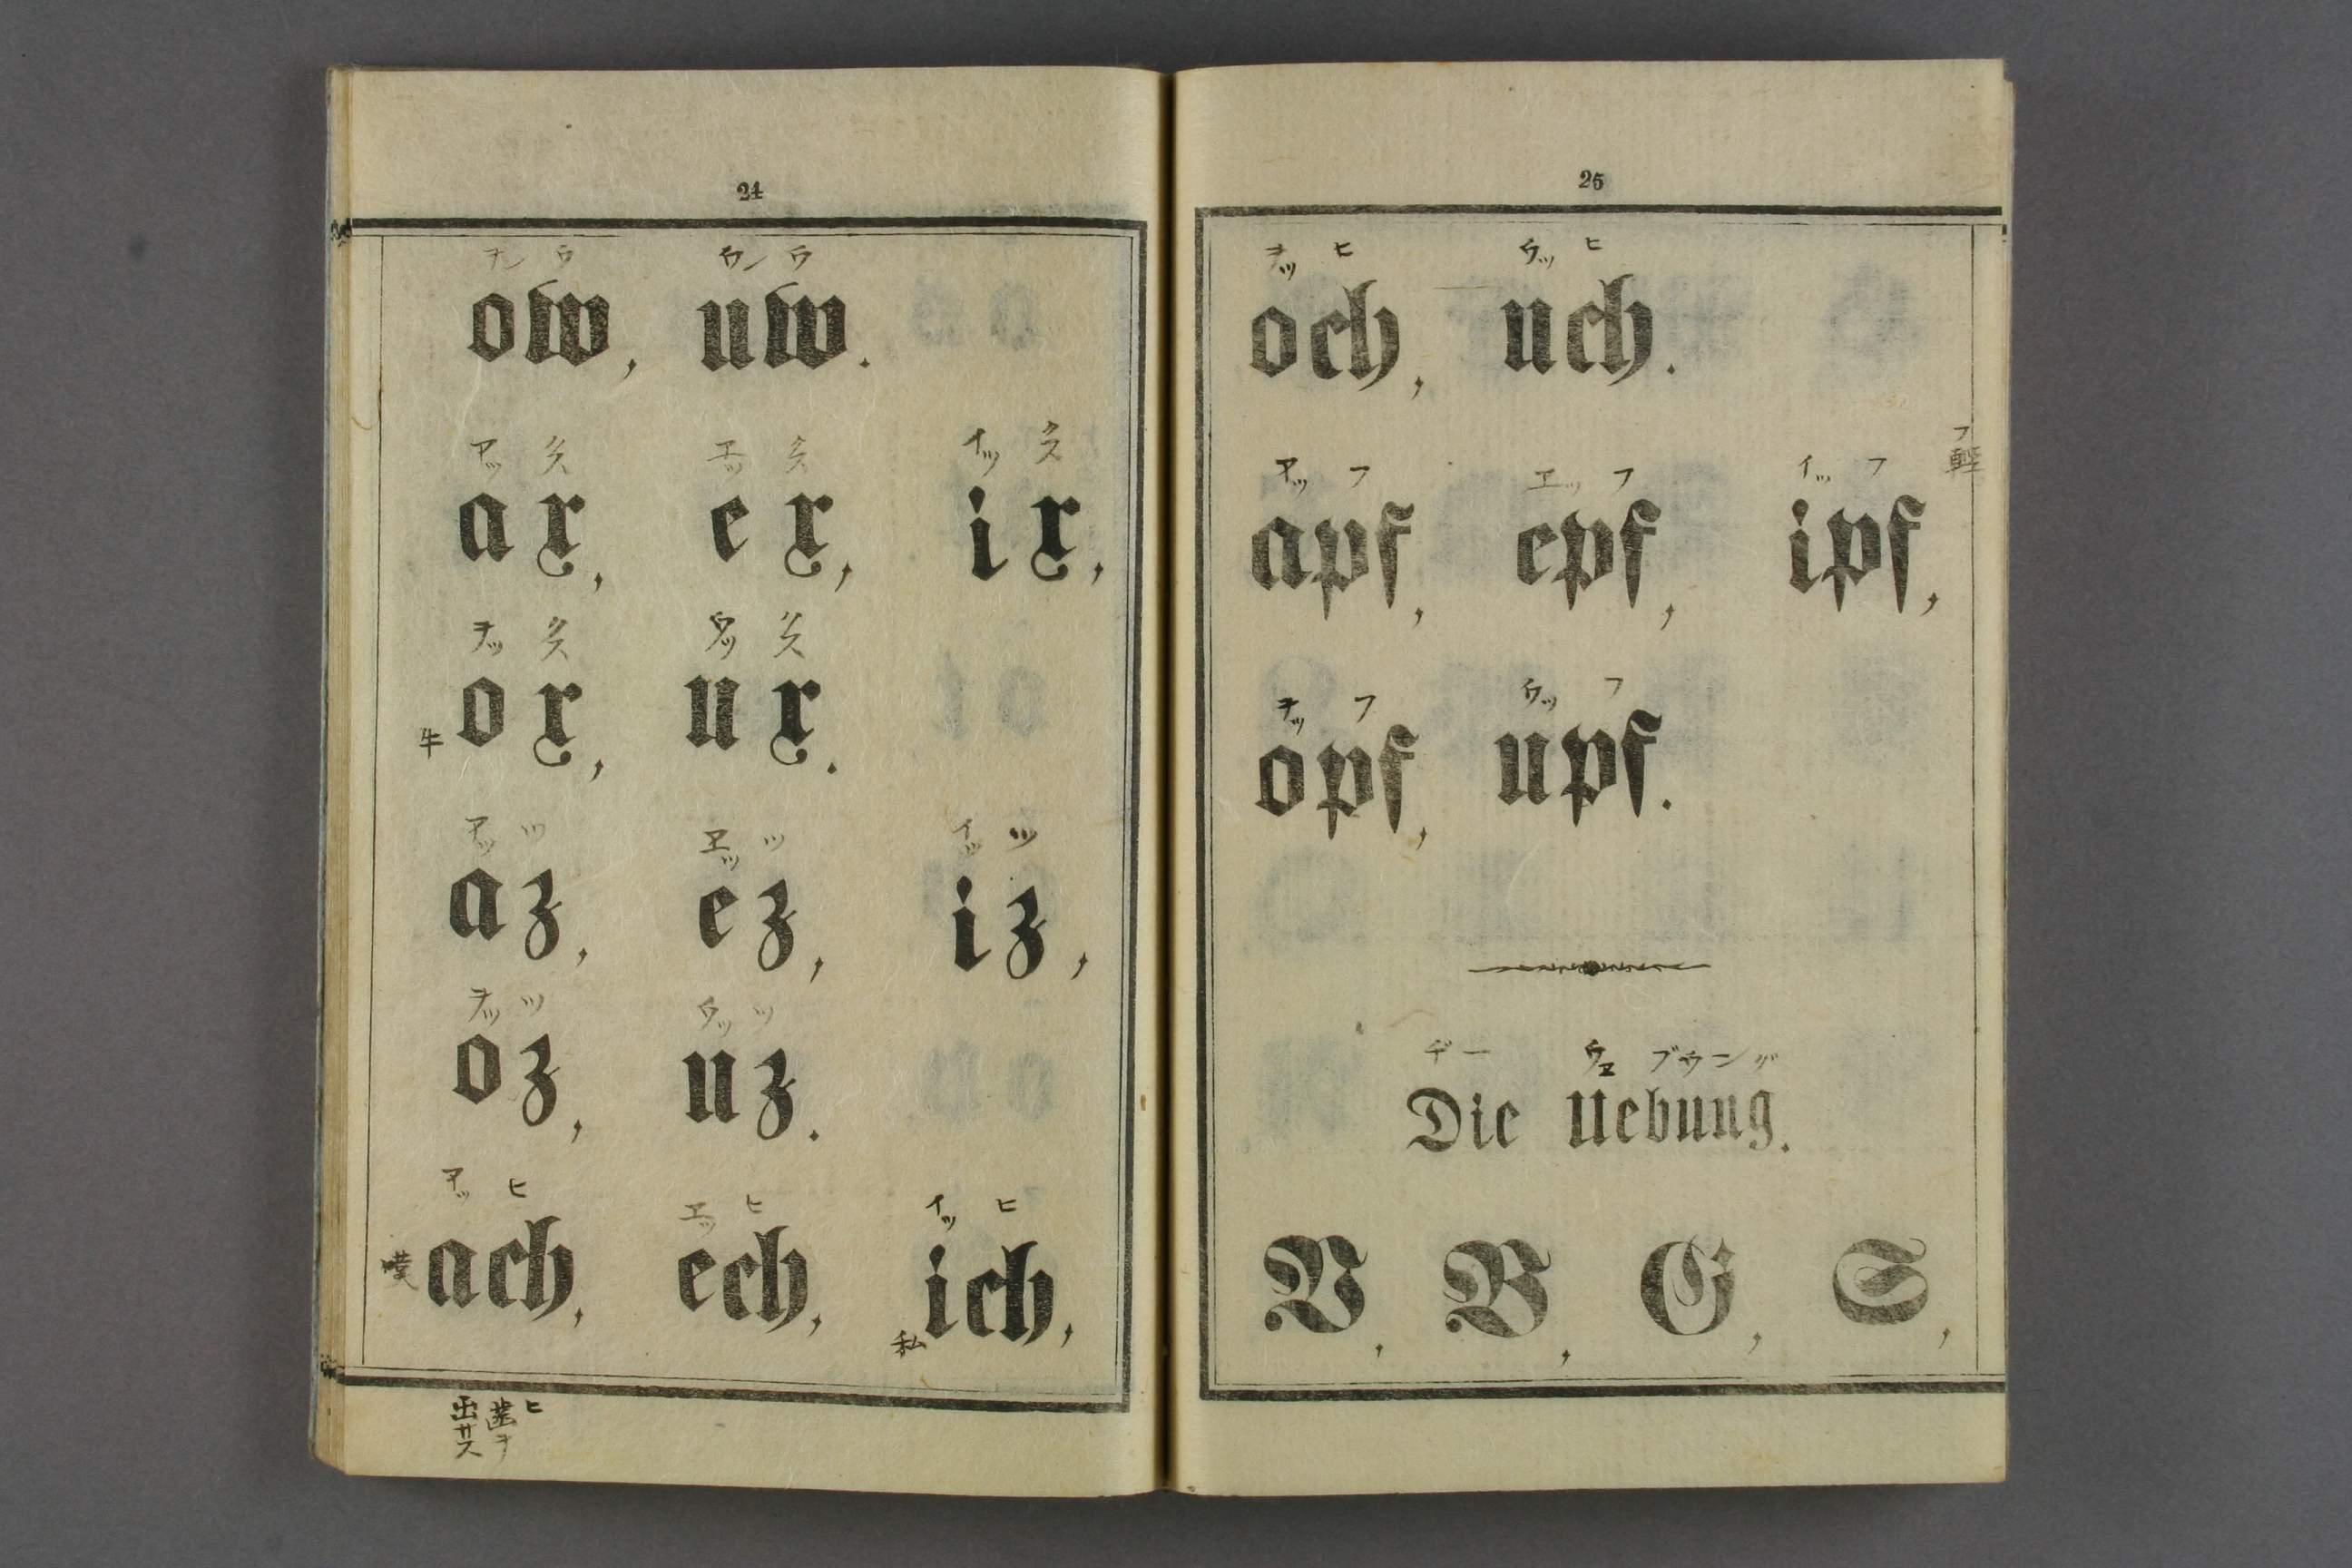 24
ヲン ウ ウン ウ
ow, uw.
アッ クス エッ クス イッ クス
ax, ex, ix,
ヲッ クス ウッ クス
牛 ox, ux.
アッ ツ エッ ツ イッ ツ
az, ez, iz,
ヲッ ツ ウッ ツ
oz, uz.
アッ ヒ エッ ヒ イッ ヒ
ach, ech, 私 ich,
ヒ
歯ヲ
出サス
25
ヲッ ヒ ウッ ヒ
och, uch.
フ
軽
アッ フ エッ フ イッ フ
apf, epf, ipf,
ヲッ フ ウッ フ
opf, upf.
ヂー ウエ ブウング
Die Uebung.
V, B, E, S,